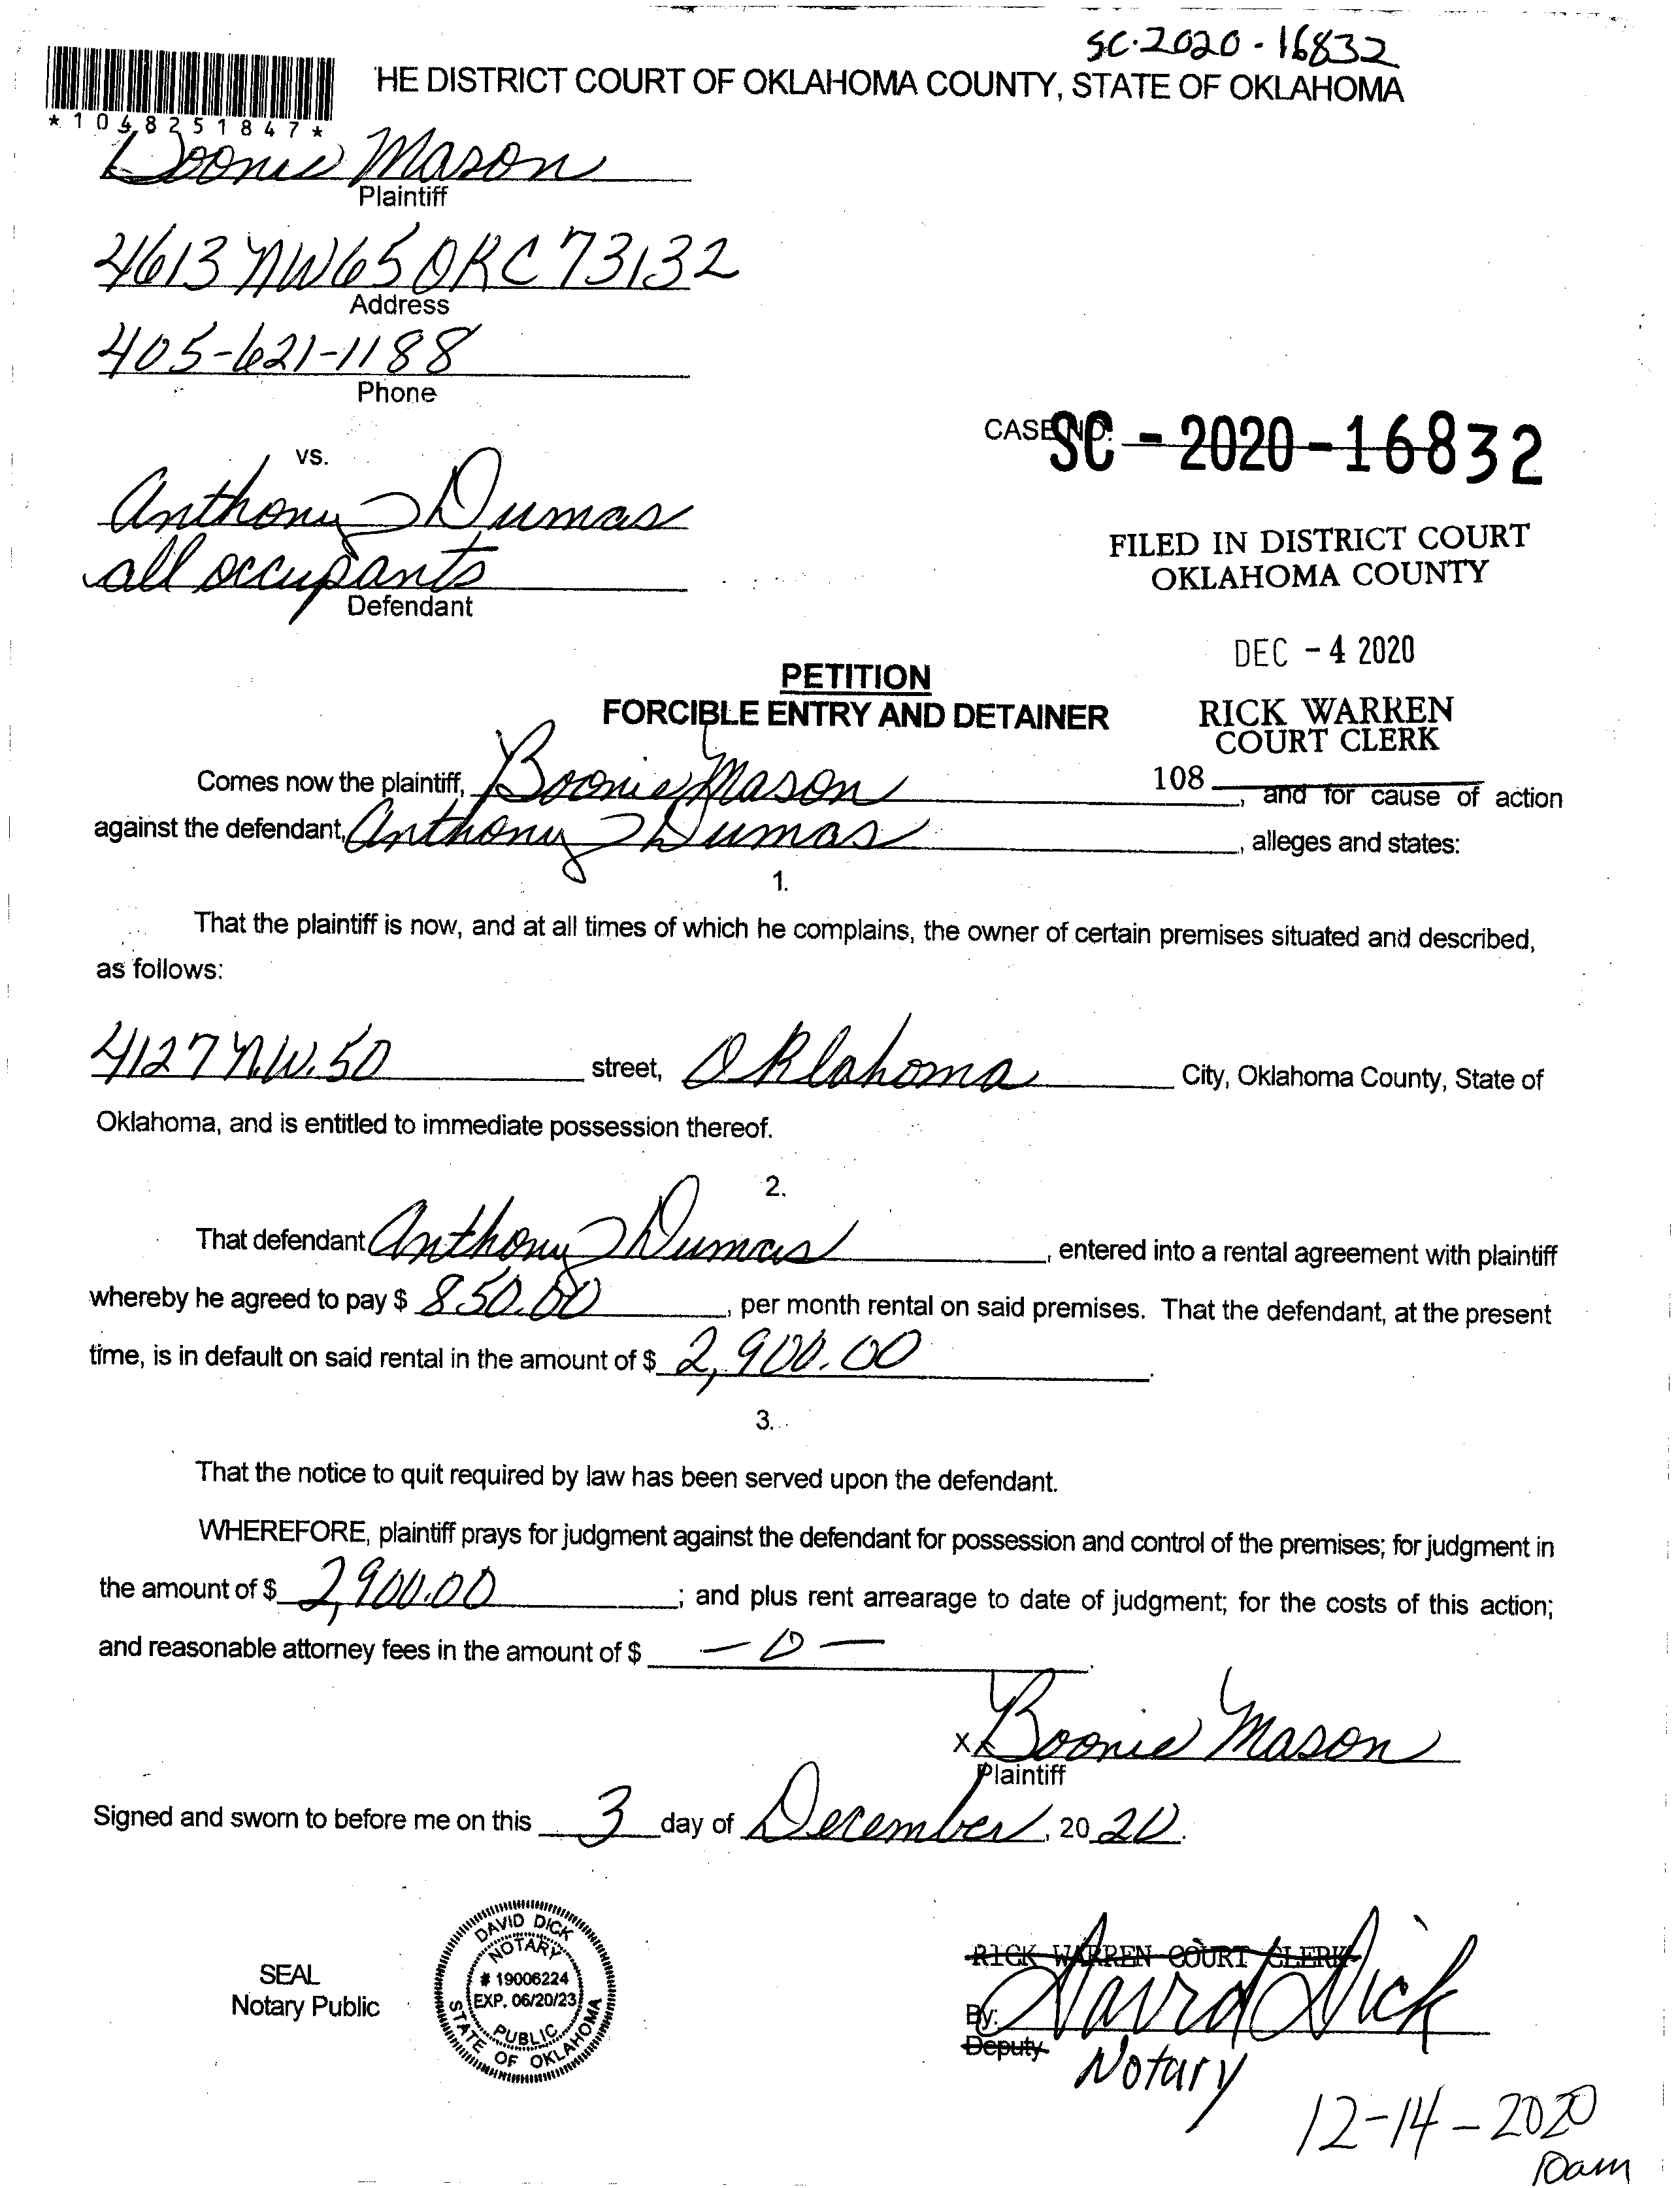 SC-2020-16832
HE DISTRICT COURT OF OKLAHOMA COUNTY, STATE OF OKLAHOMA
*1048251847*
Boonie Mason
Plaintiff
4613 NW 65 OKC 73132
Address
405-621-1188
Phone
CASE NO. SC-2020-16832
vs.
Anthony Dumas
all occupants
Defendant
FILED IN DISTRICT COURT
OKLAHOMA COUNTY
DEC -4 2020
RICK WARREN
COURT CLERK
108
PETITION
FORCIBLE ENTRY AND DETAINER
Comes now the plaintiff, Boonie Mason, and for cause of action
against the defendant, Anthony Dumas, alleges and states:
1.
That the plaintiff is now, and at all times of which he complains, the owner of certain premises situated and described,
as follows:
4127 N.W. 50 street, Oklahoma City, Oklahoma County, State of
Oklahoma, and is entitled to immediate possession thereof.
2.
That defendant Anthony Dumas, entered into a rental agreement with plaintiff
whereby he agreed to pay $ 850.00, per month rental on said premises. That the defendant, at the present
time, is in default on said rental in the amount of $ 2,900.00.
3.
That the notice to quit required by law has been served upon the defendant.
WHEREFORE, plaintiff prays for judgment against the defendant for possession and control of the premises; for judgment in
the amount of $ 2,900.00; and plus rent arrearage to date of judgment; for the costs of this action;
and reasonable attorney fees in the amount of $ -0-.
x Boonie Mason
Plaintiff
Signed and sworn to before me on this 3 day of December, 2020.
SEAL
Notary Public
DAVID DICK
NOTARY
# 19006224
EXP. 06/20/23
PUBLIC
STATE OF OKLAHOMA
RICK WARREN COURT CLERK
By: David Dick
Deputy
Notary
12-14-2020
10am